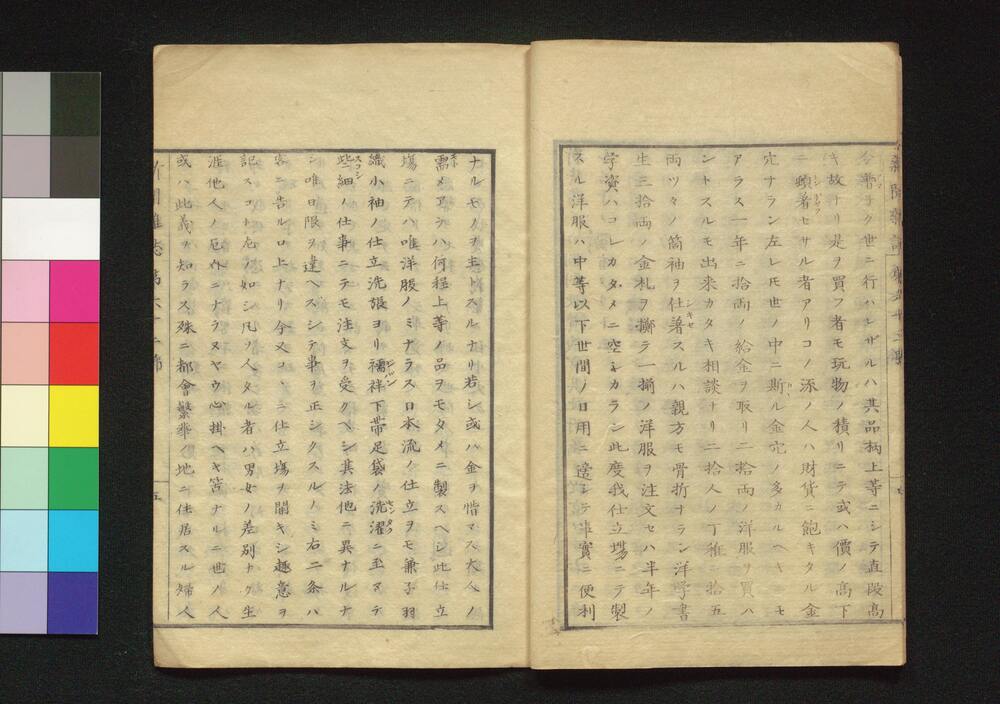 今普ク世ニ行ハレザルハ其品柄上等ニシテ直段高
キ故ナリ是ヲ買フ者モ玩物ノ積リニテ或ハ價ノ高下
ニ頓著セサル者アリコノ添ノ人ハ財貨ニ飽キタル金
穴ナラン左レ𪜈世ノ中ニ斯ル金穴ノ多カルヘキニモ
アラス一年ニ拾両ノ給金ヲ取リ二拾両ノ洋服ヲ買ハ
ントスルモ出来カタキ相談ナリ二拾人ノ丁稚ニ拾五
両ツヽノ筒袖ヲ仕著スルハ親方モ骨折ナラン洋学書
生三拾両ノ金札ヲ擲ラ一揃ノ洋服ヲ注文セハ半年ノ
学資ハコレカタメニ空シカラン此度我仕立場ニテ製
スル洋服ハ中等以下世間ノ日用ニ達シテ事實ニ便利
ナルモノヲ主トスルナリ若シ或ハ金ヲ惜マス大人ノ
需メアラハ何程上等ノ品ヲモタメニ製スヘシ此仕立
塲ニテハ唯洋服ノミナラス日本流ノ仕立ヲモ兼子羽
織小袖ノ仕立洗張ヨリ襦袢下帯足袋ノ洗濯ニ至マテ
些細ノ仕事ニテモ注文ヲ受クヘシ其法他ニ異ナルナ
シ唯日限ヲ違ヘスシテ事ヲ正シクスルノミ右二条ハ
客ニ告ルロ上ナリ今又コヽニ仕立塲ヲ開キシ趣意ヲ
記スコト左ノ如シ凡ソ人タル者ハ男女ノ差別ナク生
涯他人ノ厄介ニナラヌヤウ心掛ヘキ筈ナルニ世ノ人
或ハ此義ヲ知ラス殊ニ都會繁華ノ地ニ住居スル婦人
新聞雑誌 第六十二号
五